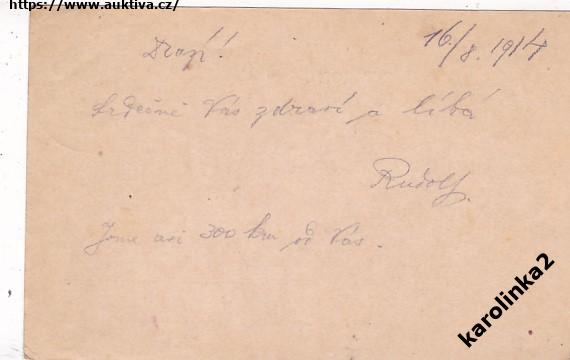 https://www.auktiva.cz/
16/8. 1914
Drazí!
Srdečně Vás zdraví a líbá
Rudolf.
Jsme asi 300 km od Vás.
karolinka2